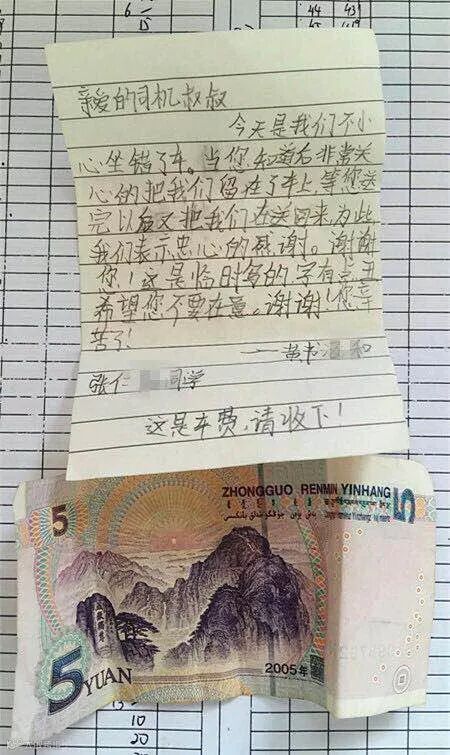 6
15
44 43
45
亲爱的司机叔叔
今天是我们不小
心坐错了车。当您知道后非常关
心的把我们留在了车上,等您送
完以后又把我们在送回来,为此
我们表示忠心的感谢。谢谢
您!这是临时写的字有点丑
希望您不要在意。谢谢!您辛
苦了!
—黄 和
张仁 同学
这是车费,请收下!
ZHONGGUO RENMIN YINHANG
5
5
5 YUAN
2005年
10
20